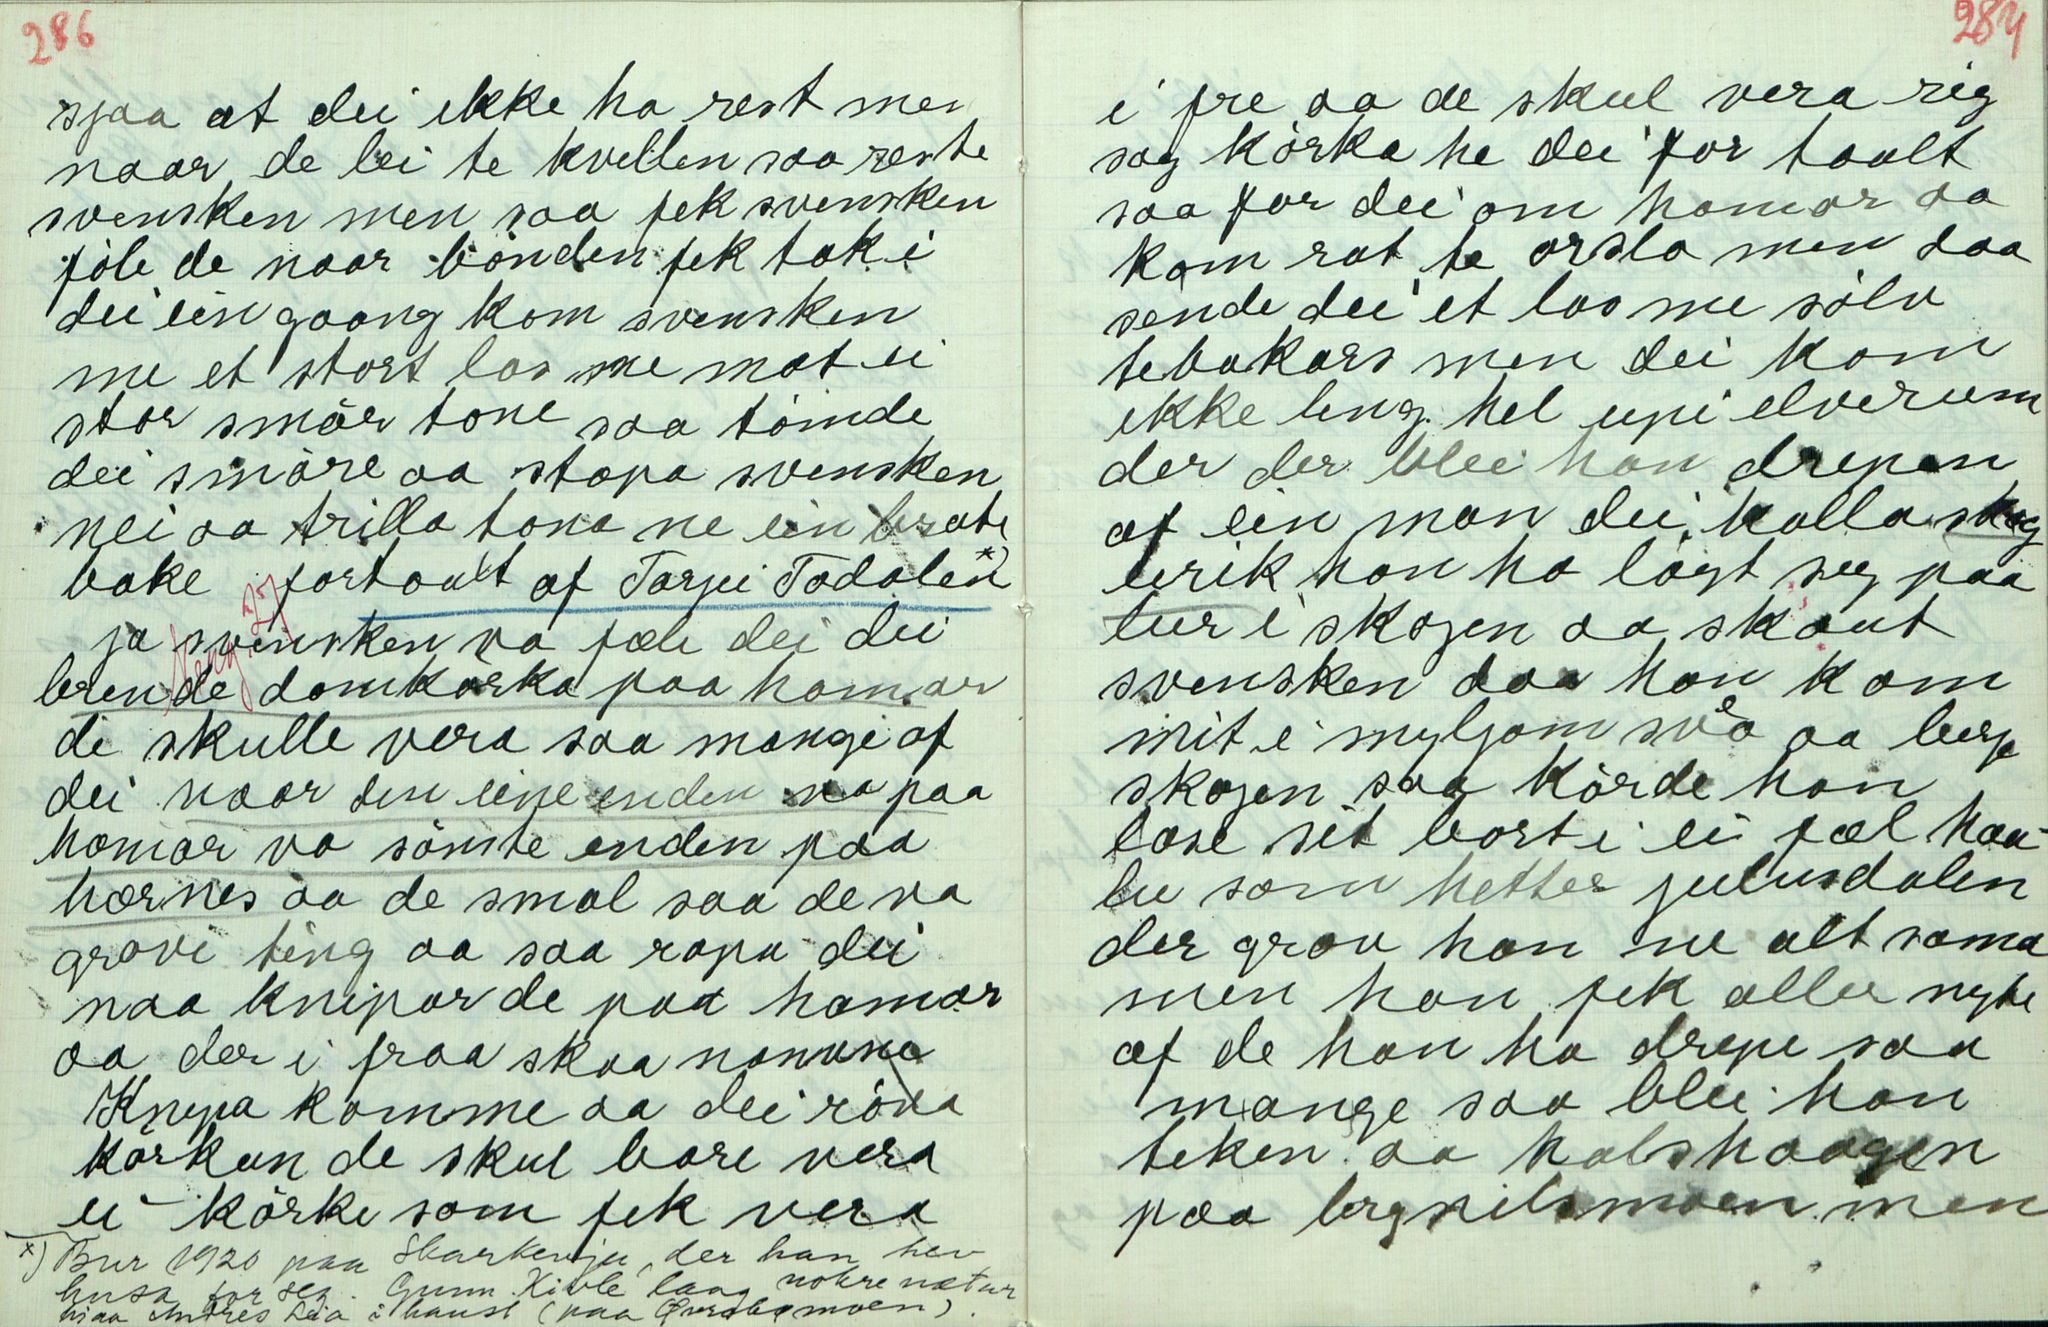 286
sjaa at dei ikke ha rest men
naar de lei te kvellen saa reste
svensken men saa fek svensken
föle de naar bönden fek tak i
dei ein gaang kom svensken
me et stort las me mat ei
stor smör tone saa tömde
dei smöre aa stopa svensken
nei aa trilla tona ne ein brate
bake fortoalt af Tarjei Todalen *)
ja svensken va fæle dei dei
brende domkörka paa hamar
di skulle vera saa mange af
dei naar den eine enden va paa
hamar va sömste enden paa
hærnes aa de smal saa de va
grovi ting aa saa ropa dei
naa knipar de paa hamar
aa der i fraa skaa namne
Knepa komme aa dei röva
körkun de skul bare vera
ei körke som fek vera
*) Bur 1920 paa Starkevju, der han hev
husa for seg. Gunn. Kivle laag nokre nætur
hjaa Andres Leia i haust (paa moen).
284
i fre aa de skul vera rig
sag körka he dei for taalt
saa for dei om hamar aa
kom rat te orsla men daa
sende dei et las me sölv
tebakars men dei kom
ikke leng. hel upi elverum
der der blei han drepen
af ein man dei kalla skog
eirik han ha lögt seg paa
lur i skogen aa skaut
svensken daa han kom
mit i myljom svea aa berge
skogen saa körde han
lase sit bort i ei fæl haa-
le som hetter julusdalen
der grov han ne alt sama
men han fek aller nyte
af de han ha drepe saa
mange saa blei han
teken aa halshaagen
paa bergnilsmoen men